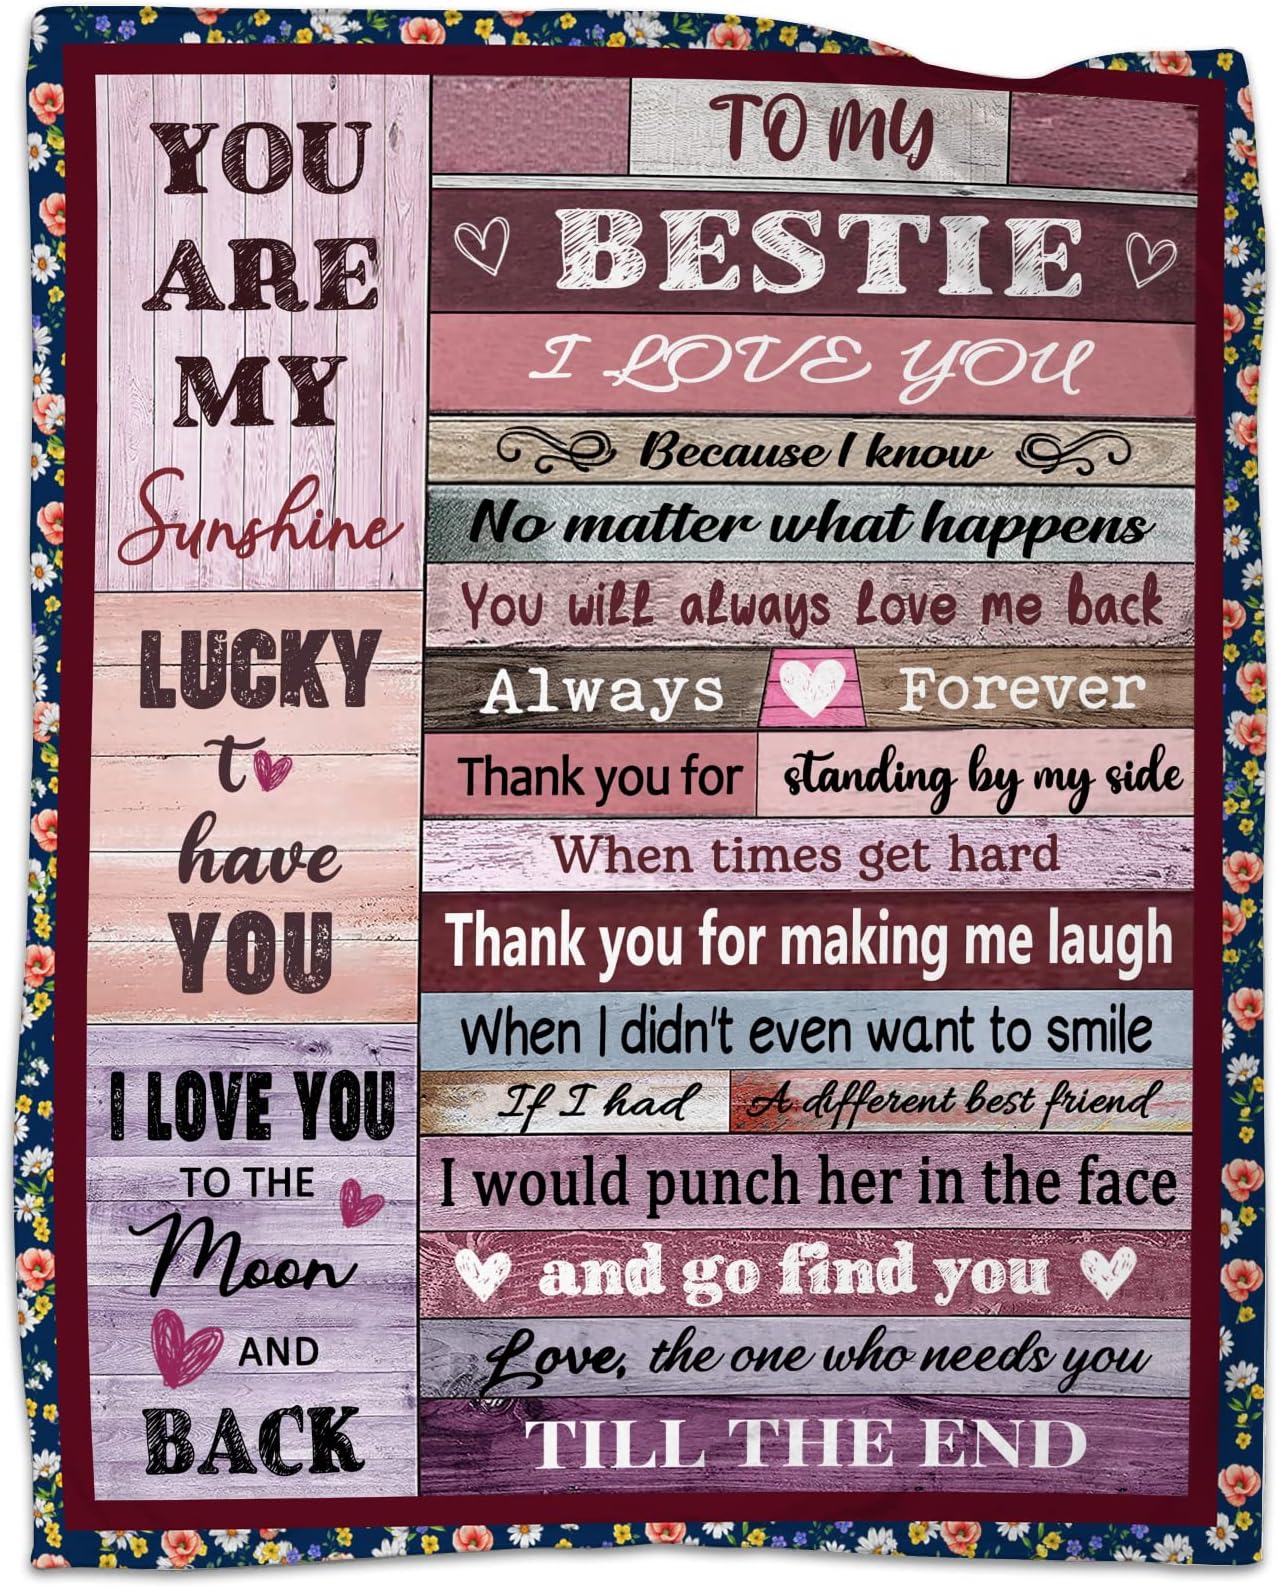 YOU
ARE
MY
Sunshine
LUCKY
to
have
YOU
I LOVE YOU
TO THE
Moon
AND
BACK
TO MY
BESTIE
I LOVE YOU
Because I know
No matter what happens
You will always love me back
Always Forever
Thank you for standing by my side
When times get hard
Thank you for making me laugh
When I didn't even want to smile
If I had A different best friend
I would punch her in the face
and go find you
Love, the one who needs you
TILL THE END